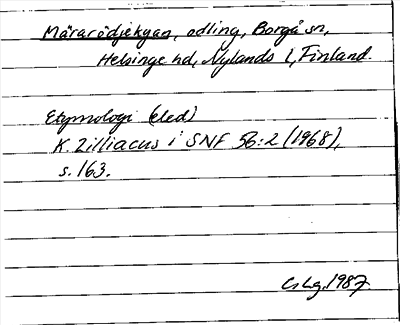 Märarödjekgan, odling, Borgå sn,
Helsinge hd, Nylands l, Finland.
Etymologi (eled)
K. Zilliacus i SNF 56:2 (1968),
s. 163.
1987.